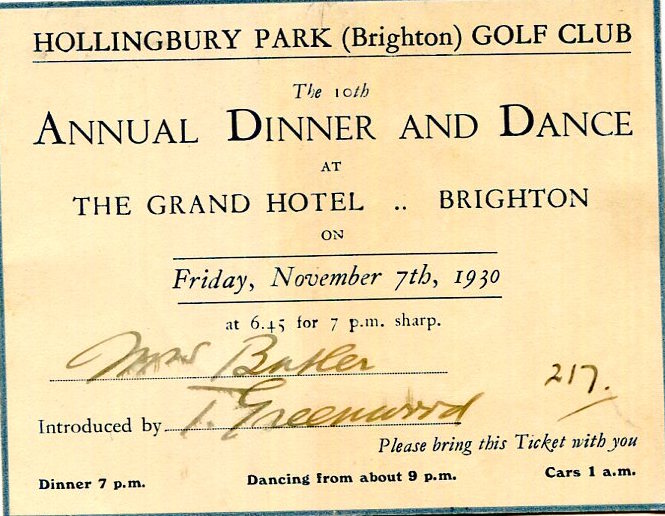 HOLLINGBURY PARK (Brighton) GOLF CLUB
The 10th
ANNUAL DINNER AND DANCE
AT
THE GRAND HOTEL .. BRIGHTON
ON
Friday, November 7th, 1930
at 6.45 for 7 p.m. sharp.
Mrs Butler
217.
Introduced by T. Greenwood
Please bring this Ticket with you
Dinner 7 p.m. Dancing from about 9 p.m. Cars 1 a.m.